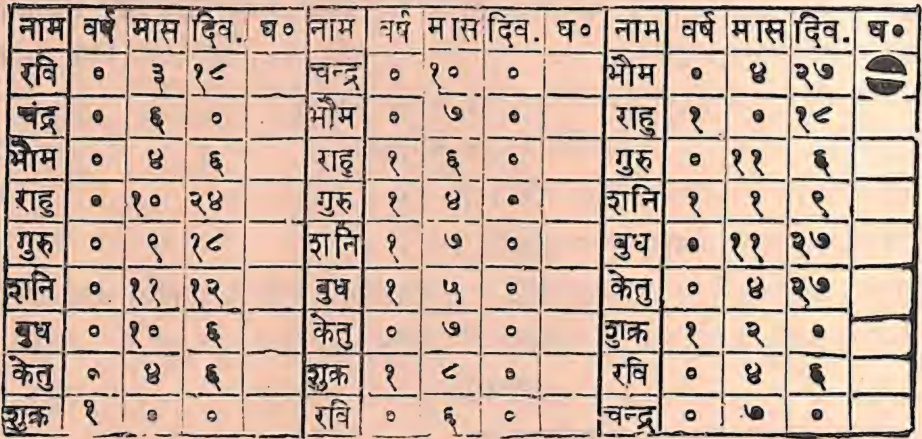 नाम वर्ष मास दिव. घ० नाम वर्ष मास दिव. घ० नाम वर्ष मास दिव. घ०
रवि ० ३ १८ चन्द्र ० १० ० भौम ० ४ २७
चंद्र ० ६ ० भौम ० ७ ० राहु १ ० १८
भौम ० ४ ६ राहु १ ६ ० गुरु ० ११ ६
राहु ० १० २४ गुरु १ ४ ० शनि १ १ ९
गुरु ० ९ १८ शनि १ ७ ० बुध ० ११ २७
शनि ० ११ १२ बुध १ ५ ० केतु ० ४ २७
बुध ० १० ६ केतु ० ७ ० शुक्र १ २ ०
केतु ० ४ ६ शुक्र १ ८ ० रवि ० ४ ६
शुक्र १ ० ० रवि ० ६ ० चन्द्र ० ७ ०